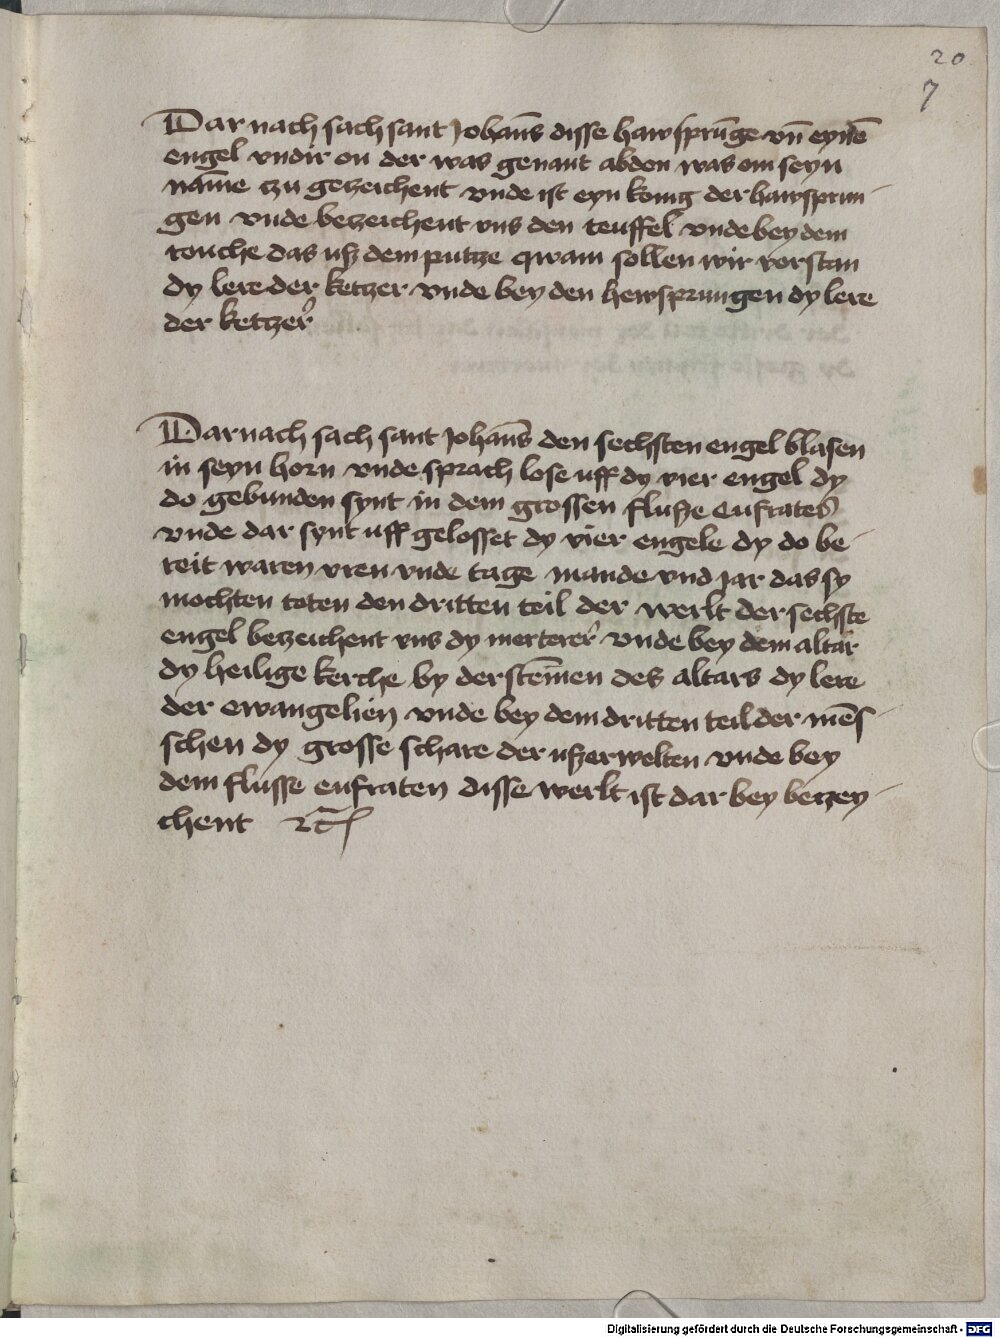 20
7
Dar nach sach sant Johans̄ disse hawsprūge vn̄ eynē
engel vndir on der was genant abdon was om seyn
nam̄e czu geczeichent vnde ist eyn konig der hawsprun-
gen vnde beczeichent vns den teuffel vnde bey dem
rouche das uſz dem putze qwam sollen wir vorstan
dy lere der ketczer vnde bey den hewsprungen dy lere
der ketczer
Darnach sach sant Johans̄ den sechsten engel blasen
in seyn horn vnde sprach lose uff dy vier engel dy
do gebunden synt in dem grossen flusze eufrates
vnde dar synt uff gelosset dy vier engele dy do be-
reit waren vren vnde tage mande vnd jar das sy
mochten toten den dritten teil der werlt der sechste
engel beczeichent vns dy merterer vnde bey dem altar
dy heilige kerche by der stēmen des altars dy lere
der ewangelien vnde bey dem dritten teil der mēs-
schen dy grosse schare der uſzerwelten vnde bey
dem flusse eufraten disse werlt ist dar bey beczey-
chent ⁊c̄
Digitalisierung gefördert durch die Deutsche Forschungsgemeinschaft - DFG